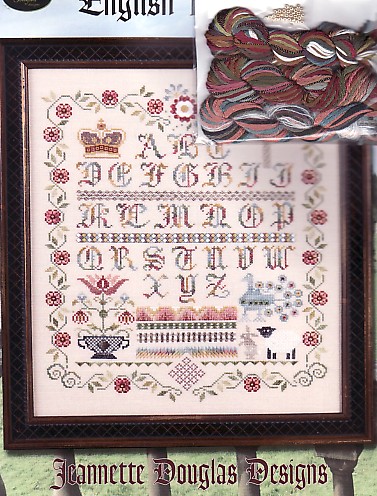 English
A B C
D E F G H I J
K L M N O P
Q R S T U V W
X Y Z
Jeannette Douglas Designs